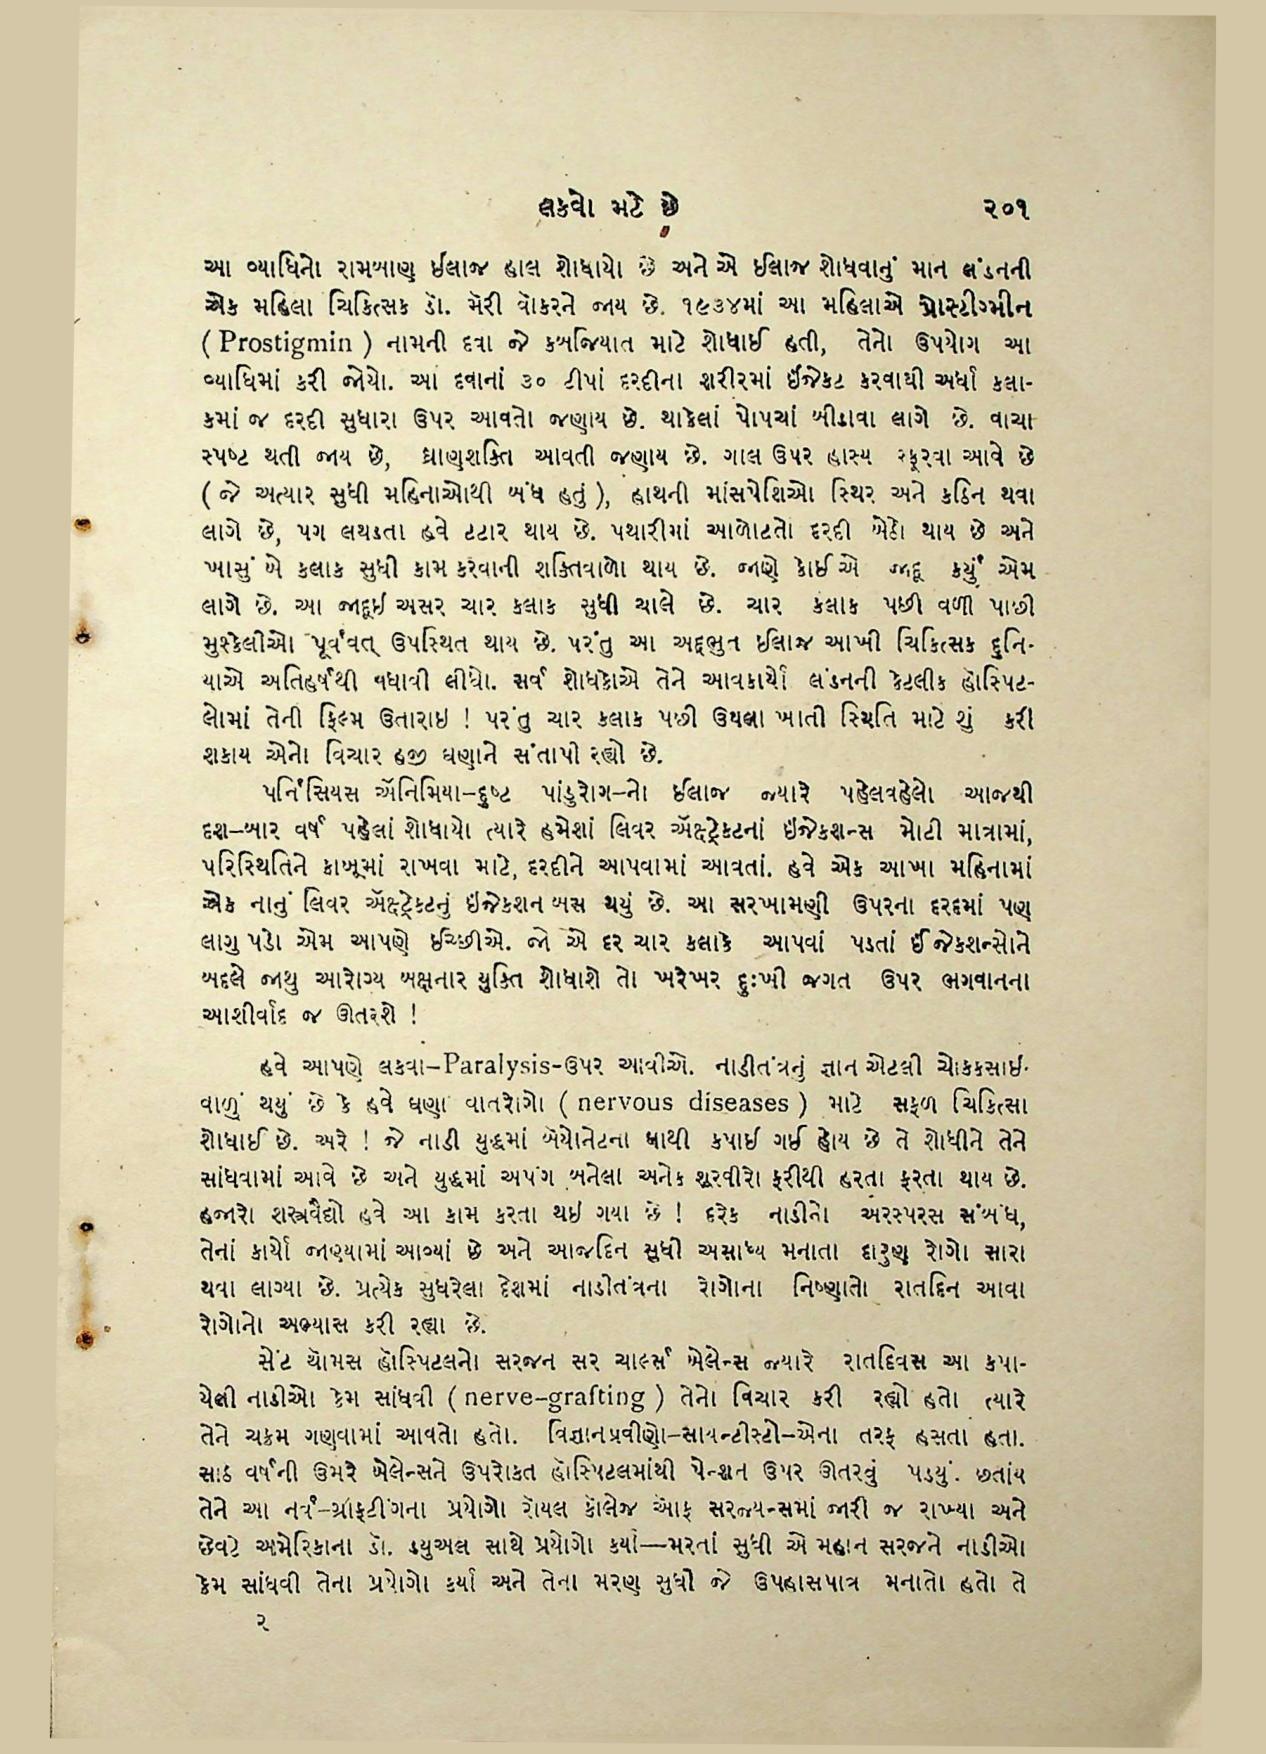 લકવો મટે છે ૨૦૧
આ વ્યાધિનો રામબાણ ઈલાજ હાલ શોધાયો છે અને એ ઈલાજ શોધવાનું માન લંડનની
એક મહિલા ચિકિત્સક ડૉ. મૅરી વૉકરને જાય છે. ૧૯૩૪માં આ મહિલાએ પ્રોસ્ટીગ્મીન
( Prostigmin ) નામની દવા જે કબજિયાત માટે શોધાઈ હતી, તેનો ઉપયોગ આ
વ્યાધિમાં કરી જોયો. આ દવાનાં ૩૦ ટીપાં દરદીના શરીરમાં ઈંજેકટ કરવાથી અર્ધા કલા-
કમાં જ દરદી સુધારા ઉપર આવતો જણાય છે. થાકેલાં પોપચાં બીડાવા લાગે છે. વાચા
સ્પષ્ટ થતી જાય છે, ઘ્રાણશક્તિ આવતી જણાય છે. ગાલ ઉપર હાસ્ય સ્ફૂરવા આવે છે
( જે અત્યાર સુધી મહિનાઓથી બંધ હતું ), હાથની માંસપેશિઓ સ્થિર અને કઠિન થવા
લાગે છે, પગ લથડતા હવે ટટાર થાય છે. પથારીમાં આળોટતો દરદી બેઠો થાય છે અને
ખાસું બે કલાક સુધી કામ કરવાની શક્તિવાળો થાય છે. જાણે કોઈ એ જાદૂ કર્યું એમ
લાગે છે. આ જાદૂઇ અસર ચાર કલાક સુધી ચાલે છે. ચાર કલાક પછી વળી પાછી
મુશ્કેલીઓ પૂર્વવત્ ઉપસ્થિત થાય છે. પરંતુ આ અદ્દભુત ઈલાજ આખી ચિકિત્સક દુનિ-
યાએ અતિહર્ષથી વધાવી લીધો. સર્વ શોધકોએ તેને આવકાર્યો લંડનની કેટલીક હૉસ્પિટ-
લોમાં તેની ફિલ્મ ઉતારાઇ ! પરંતુ ચાર કલાક પછી ઉથલા ખાતી સ્થિતિ માટે શું કરી
શકાય એનો વિચાર હજી ઘણાને સંતાપી રહ્યો છે.
પર્નિસિયસ ઍનિમિયા-દુષ્ટ પાંડુરોગ-નો ઈલાજ જ્યારે પહેલવહેલો આજથી
દશ-બાર વર્ષ પહેલાં શોધાયો ત્યારે હમેશાં લિવર ઍક્ષ્ટ્રેક્ટનાં ઇંજેકશન્સ મોટી માત્રામાં,
પરિસ્થિતિને કાબૂમાં રાખવા માટે, દરદીને આપવામાં આવતાં. હવે એક આખા મહિનામાં
એક નાનું લિવર ઍક્ષ્ટ્રેક્ટનું ઇંજેકશન બસ થયું છે. આ સરખામણી ઉપરના દરદમાં પણ
લાગુ પડો એમ આપણે ઈચ્છીએ. જો એ દર ચાર કલાકે આપવાં પડતાં ઈંજેકશન્સોને
બદલે જાથુ આરોગ્ય બક્ષનાર યુક્તિ શોધાશે તો ખરેખર દુઃખી જગત ઉપર ભગવાનના
આશીર્વાદ જ ઊતરશે !
હવે આપણે લકવા-Paralysis-ઉપર આવીએ. નાડીતંત્રનું જ્ઞાન એટલી ચોકકસાઇ-
વાળું થયું છે કે હવે ઘણા વાતરોગો ( nervous diseases ) માટે સફળ ચિકિત્સા
શોધાઈ છે. અરે ! જે નાડી યુદ્ધમાં બૅયોનેટના ઘાથી કપાઇ ગઈ હોય છે તે શોધીને તેને
સાંધવામાં આવે છે અને યુદ્ધમાં અપંગ બનેલા અનેક શૂરવીરો ફરીથી હરતા ફરતા થાય છે.
હજારો શસ્ત્રવૈદ્યો હવે આ કામ કરતા થઇ ગયા છે ! દરેક નાડીનો અરસ્પરસ સંબંધ,
તેનાં કાર્યો જાણ્યામાં આવ્યાં છે અને આજદિન સુધી અસાધ્ય મનાતા દારુણ રોગો સારા
થવા લાગ્યા છે. પ્રત્યેક સુધરેલા દેશમાં નાડીતંત્રના રોગોના નિષ્ણાતો રાતદિન આવા
રોગોનો અભ્યાસ કરી રહ્યા છે.
સેંટ થૉમસ હૉસ્પિટલનો સરજન સર ચાર્લ્સ બેલેન્સ જ્યારે રાતદિવસ આ કપા-
યેલી નાડીઓ કેમ સાંધવી ( nerve-grafting ) તેનો વિચાર કરી રહ્યો હતો ત્યારે
તેને ચક્રમ ગણવામાં આવતો હતો. વિજ્ઞાનપ્રવીણો-સાયન્ટીસ્ટો-એના તરફ હસતા હતા.
સાઠ વર્ષની ઉમરે બેલેન્સને ઉપરોકત હૉસ્પિટલમાંથી પેન્શન ઉપર ઊતરવું પડયું. છતાંય
તેને આ નર્વ-ગ્રાફ્ટીંગના પ્રયોગો રૉયલ કૉલેજ ઑફ સરજ્યન્સમાં જારી જ રાખ્યા અને
છેવટે અમેરિકાના ડૉ. ડયુઅલ સાથે પ્રયોગો કર્યા—મરતાં સુધી એ મહાન સરજને નાડીઓ
કેમ સાંધવી તેના પ્રયોગો કર્યા અને તેના મરણ સુધી જે ઉપહાસપાત્ર મનાતો હતો તે
૨